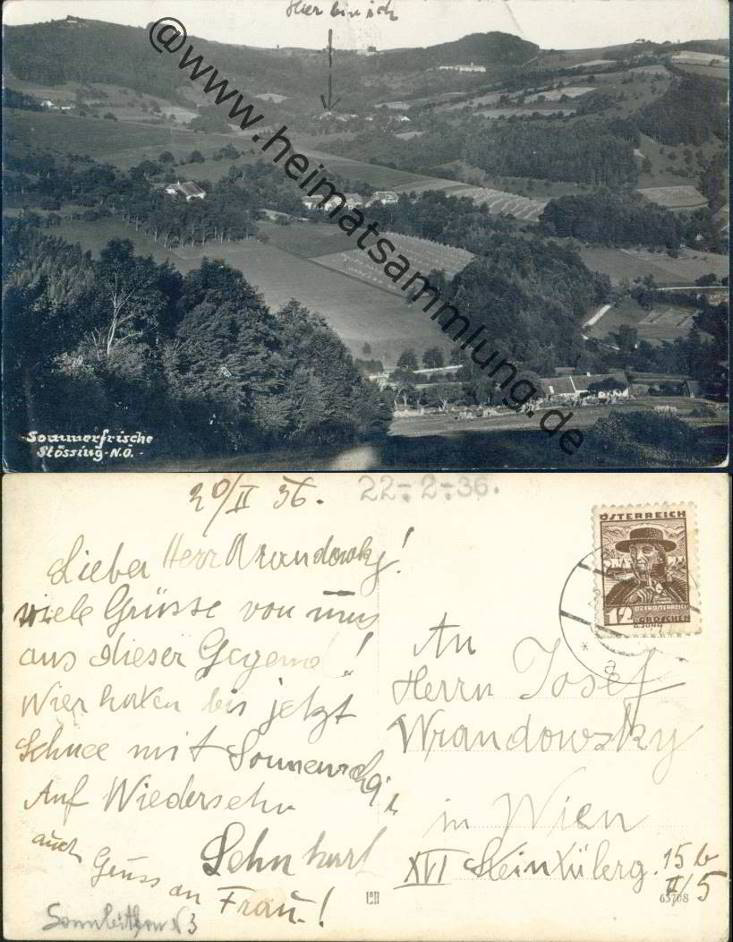 Hier bin ich
@www.heimatsammlung.de
Sommerfrische
Stössing-N.Ö.-
20/II 36. 22.-2.-36.
Lieber Herr Wrandowsky!
viele Grüsse von uns
aus dieser Gegend!
Wier haben bis jetzt
Schnee mit Sonnenschein
Auf Wiedersehn
auch Gruss an Frau!
ÖSTERREICH
12 GROSCHEN
An
Herrn Josef
Wrandowsky
in Wien
XVI 15b
II/5